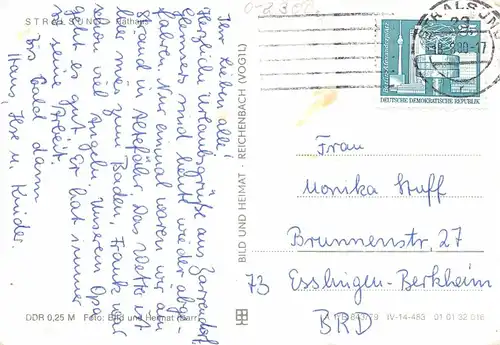 STRALSUND Rathaus
Ihr Lieben alle!
Herzliche Urlaubsgrüße aus Zarrendorf
sind heut wieder abge-
fahren. Nur einmal waren wir am
Strand in Altefähr. Das Wetter ist
aber mies zum Baden, Frank war
schon viel Angeln. Unserem Opa
geht es gut. Er hat immer
seine Arbeit.
Bis bald dann
Hans, Ilse u. Kinder.
DDR 0,25 M Foto: Bild und Heimat (Darr)
BILD UND HEIMAT · REICHENBACH (VOGTL)
STRALSUND
Berlin-Alexanderplatz
DEUTSCHE DEMOKRATISCHE REPUBLIK
Frau
Monika Stuff
Brunnenstr. 27
73 Esslingen-Berkheim
BRD
IV-14-483 01 01 32 016